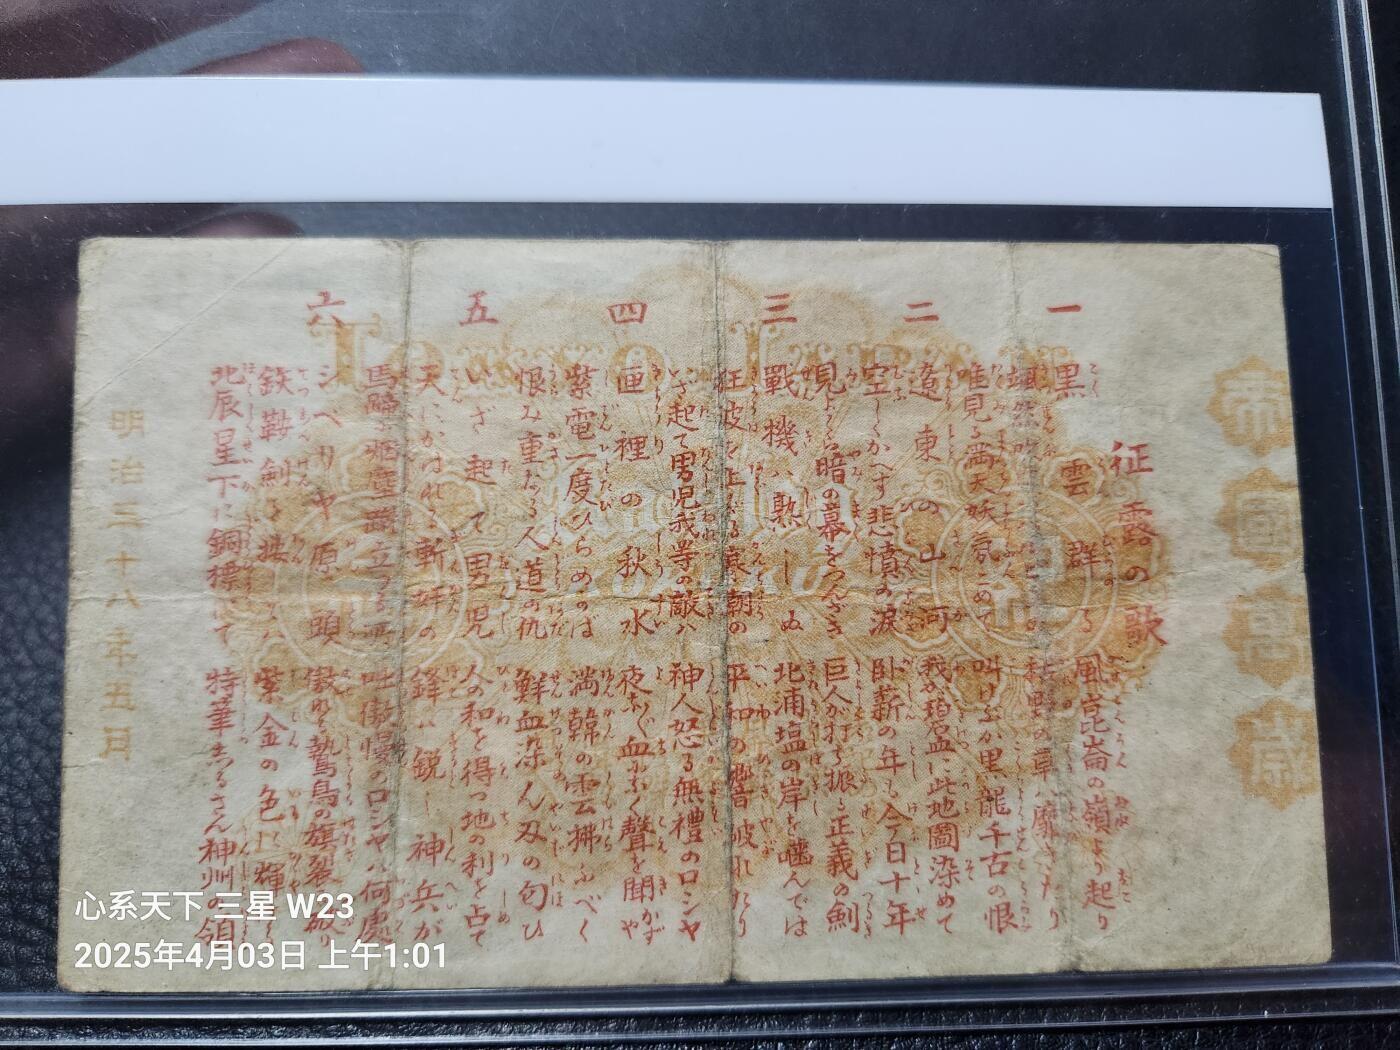 帝國萬歳
征露の歌
一
黒雲群る 風 昆崙の嶺より起り
颯然 の草ハ靡きたり
惟見る満天妖氛こめて 叫けぶか黒龍千古の恨
二
遼東の山河 我が碧血に此地圖染めて
空しくかへす悲憤の涙 臥薪の年も今日十年
見よ〳〵暗の幕をつんざき 巨人が打ち振る正義の劍
三
戰機ハ熟しぬ 北浦塩の岸を噛んでは
狂波を上ぐる 朝の 平和の響破れたり
いざ起て男児我等の敵ハ 神人怒る無禮のロシヤ
四
匣裡の秋水 夜なく 聲を聞かずや
紫電一度ひらめかば 満韓の雲拂ふべく
恨み重なる人道の仇 鮮血染ん刄の匂ひ
五
いざ起て男児 人の和を得つ地の利を占て
天にかはれる斬奸の 鋒は鋭し神兵が
馬蹄 塵 立つる 傲慢のロシヤハ何處
六
シベリヤ原頭 傲れる鷲鳥の旗裂
鉄鞍劍 紫金の色に輝
北辰星下に銅標たて 特筆志るさん神州の領
明治三十八年五月
心系天下 三星 W23
2025年4月03日 上午1:01